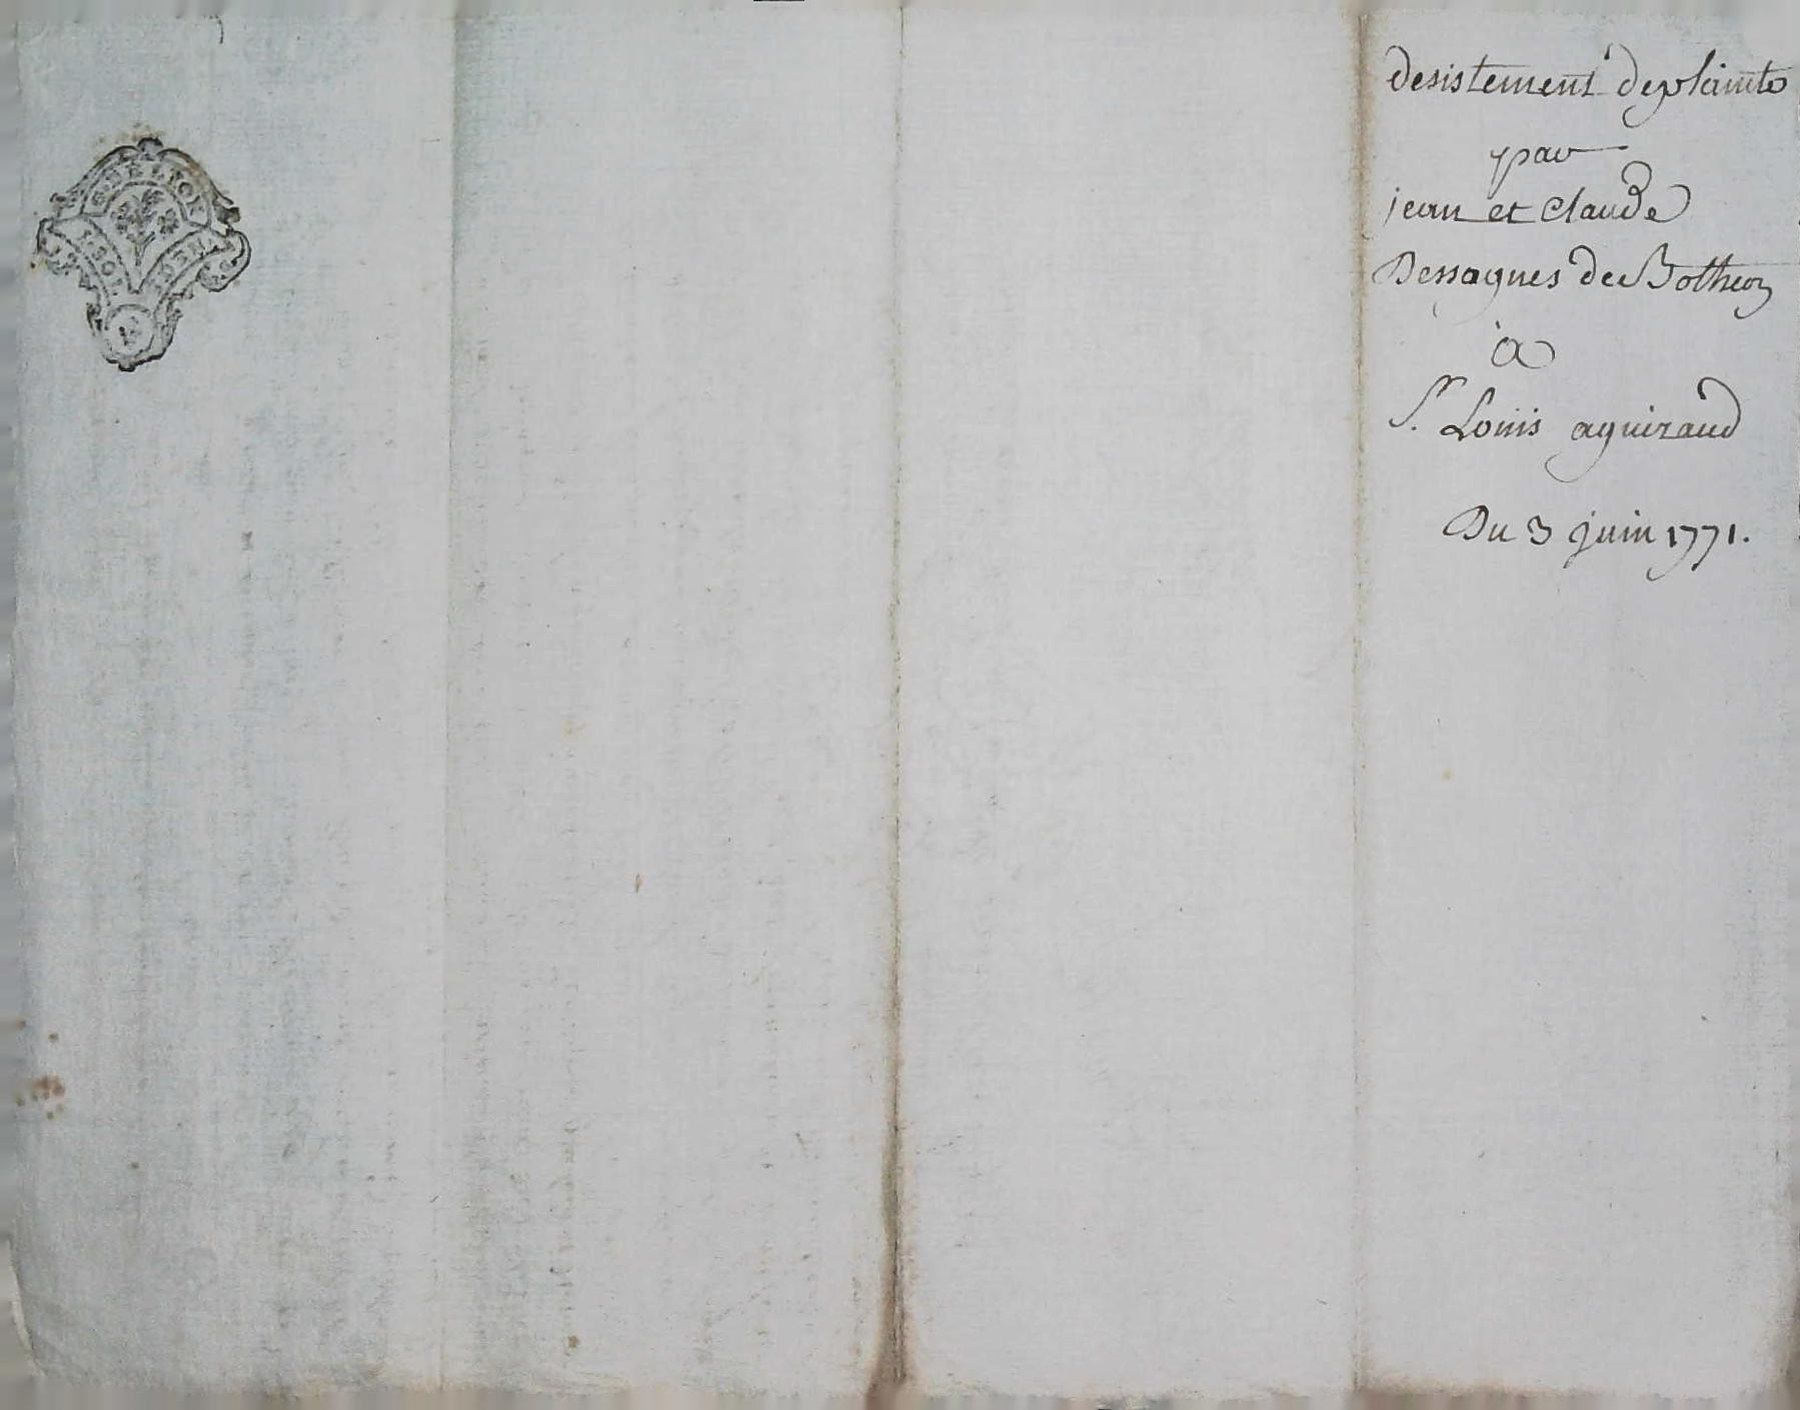 GEN. LYON
desistement de plainte
par
jean et Claude
Dessagnes de Botheon
à
Sr. Louis aguiraud
Du 3 juin 1771.